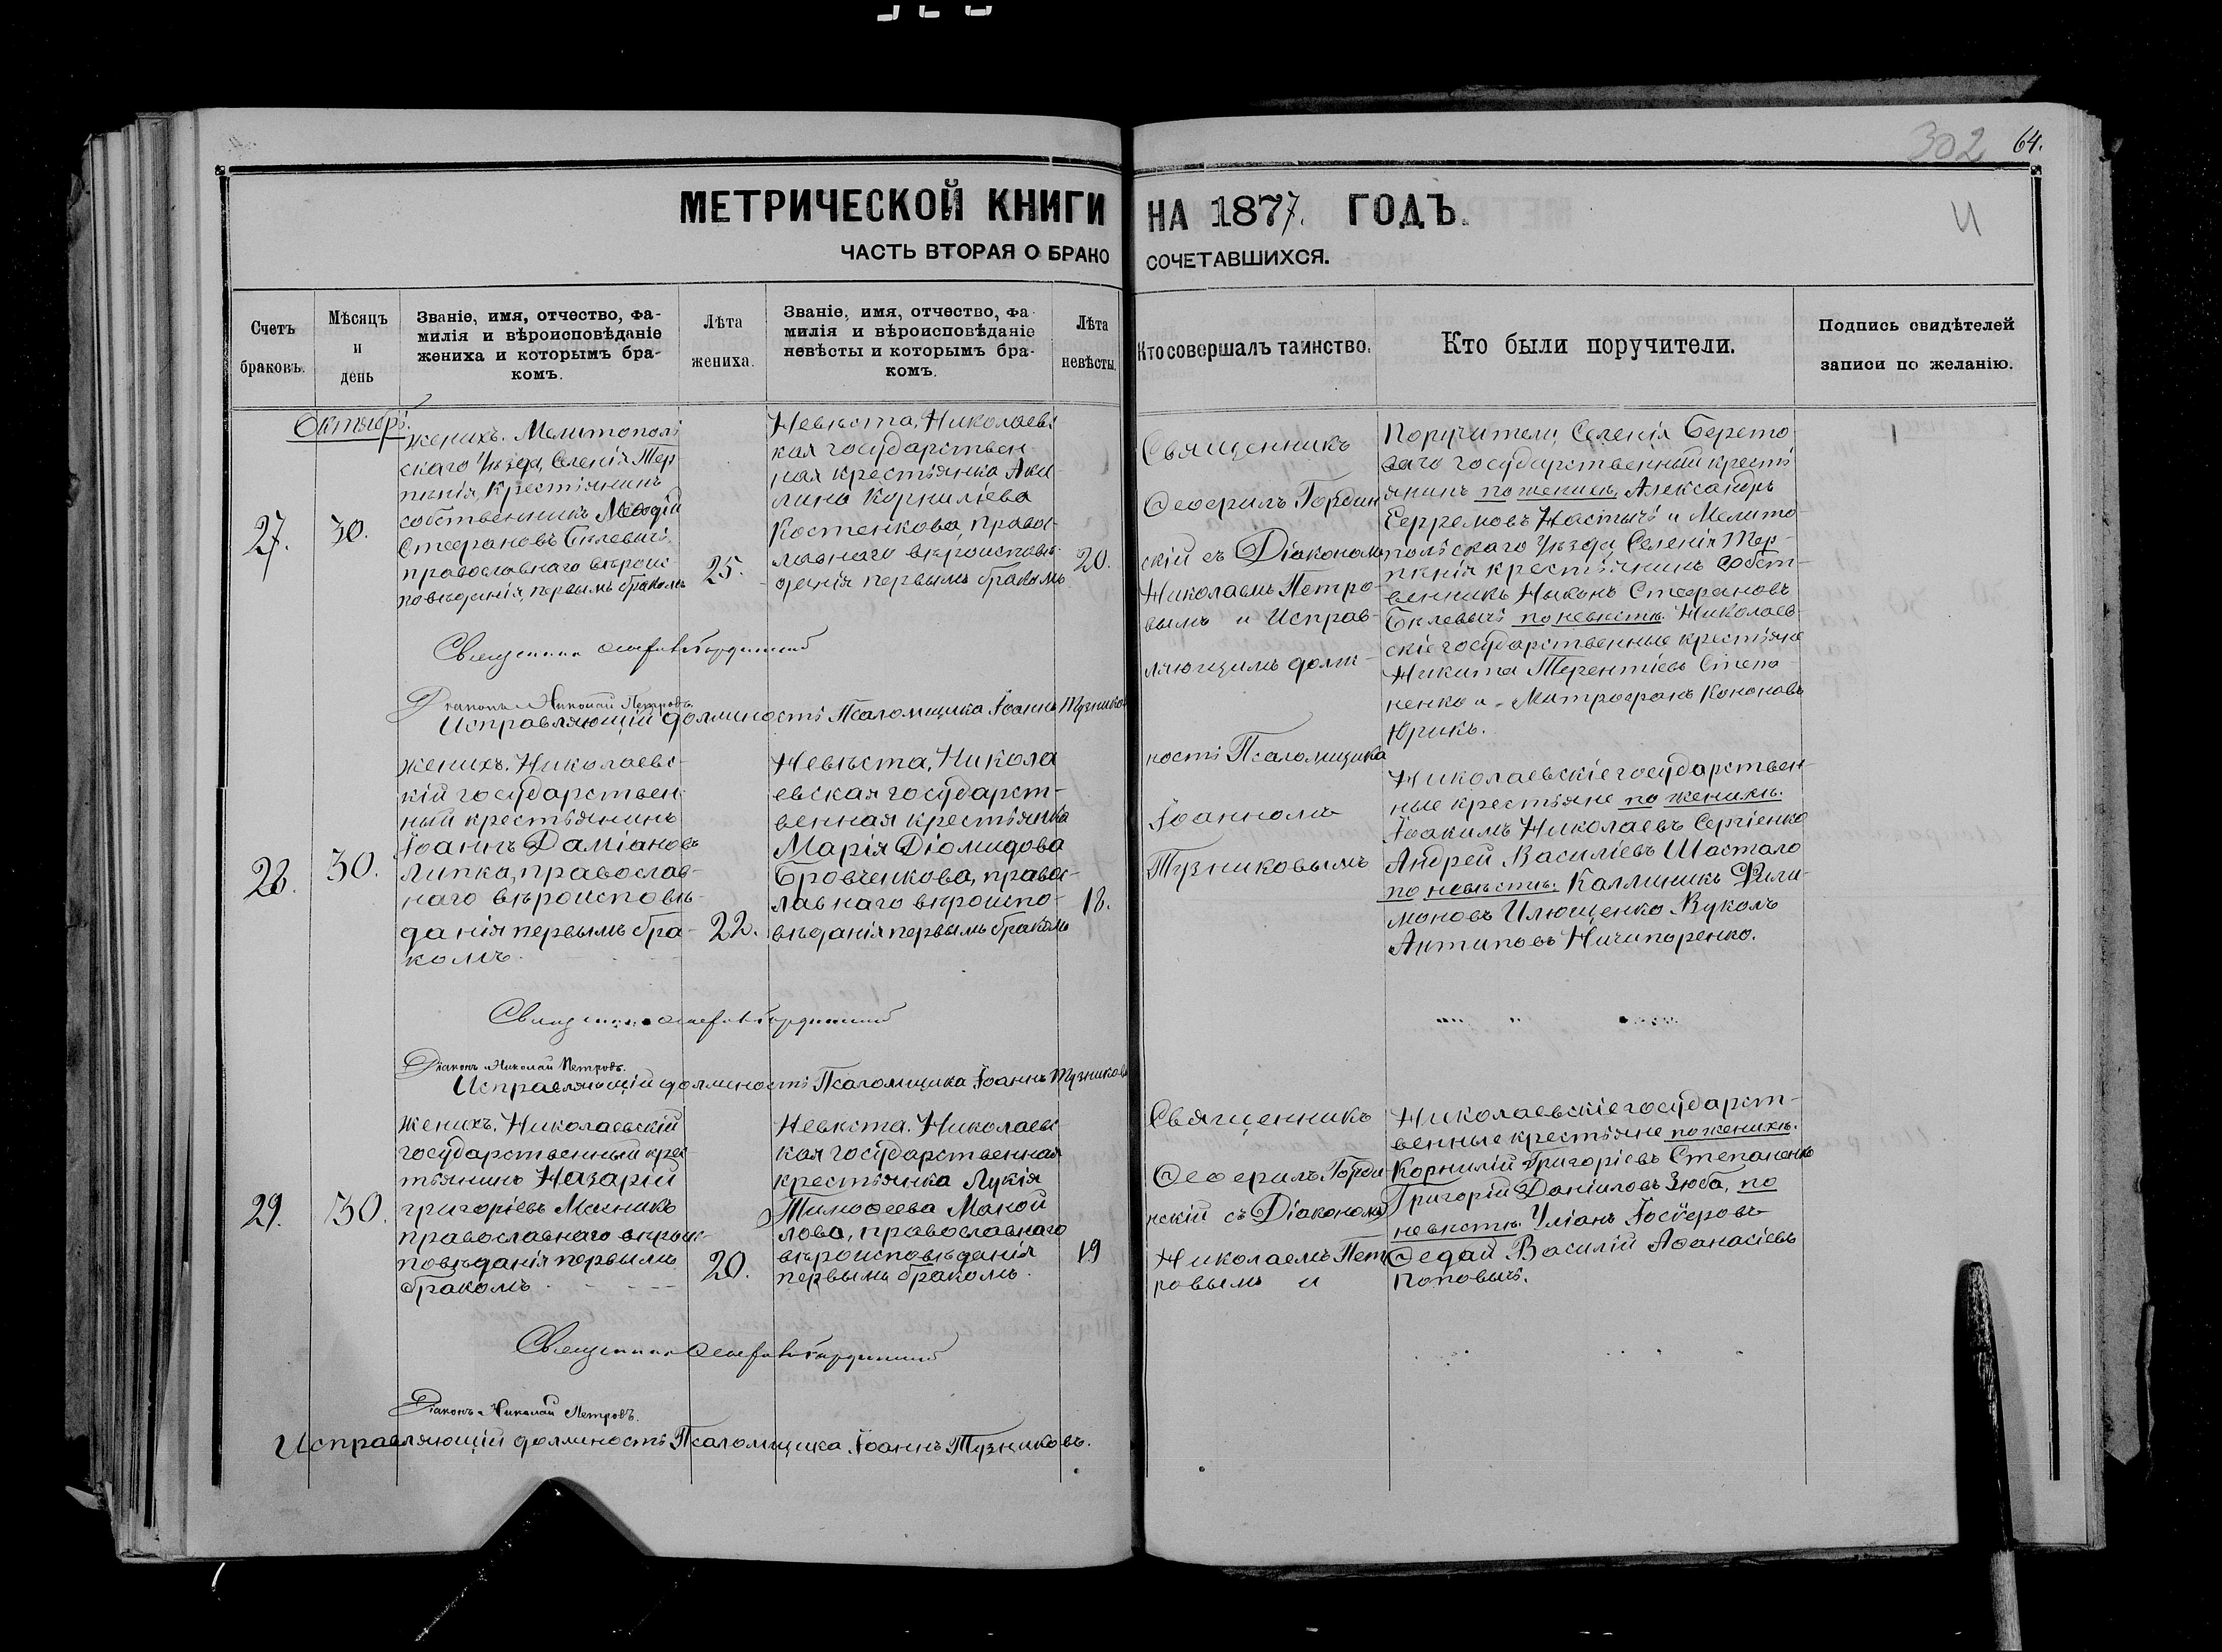 302
64.
МЕТРИЧЕСКОЙ КНИГИ НА 1877. ГОДЪ.
ЧАСТЬ ВТОРАЯ О БРАКО СОЧЕТАВШИХСЯ.
Счетъ браковъ.
Мѣсяцъ и день
Званіе, имя, отчество, фа-
милія и вѣроисповѣданіе
жениха и которымъ бра-
комъ.
Лѣта жениха.
Званіе, имя, отчество, фа-
милія и вѣроисповѣданіе
невѣсты и которымъ бра-
комъ.
Лѣта невѣсты.
Кто совершалъ таинство.
Кто были поручители.
Подпись свидѣтелей
записи по желанію.
Октябрь.
27.
30.
женихъ. Мелитополь
скаго Уѣзда, Селенія Тер-
пѣнія, Крестьянинъ
собственникъ Меѳодій
Стефановъ Бклевичь
православнаго вѣроис-
повѣданія, первымъ бракомъ
25.
Невѣста, Николаевс
кая государствен
ная крестьянка Аки
лина Корниліева
Костенкова, правос-
лавнаго вѣроисповѣ-
данія первымъ бракомъ
20.
Священникъ
Ѳеофилъ Гордин
скій съ Діакономъ
Николаемъ Петро-
вымъ и Исправ-
ляющимъ долж-
ность Псаломщика
Іоанномъ
Тузниковымъ
Поручители, Селенія Берето
ваго государственный кресть
янинъ по женихѣ, Александръ
Ефремовъ Настычь и Мелито-
польскаго Уѣзда, Селенія Тер-
пѣнія крестьянинъ собст-
венникъ Никонъ Стефановъ
Бклевичь по невѣстѣ. Николаев-
скіе государственные крестьяне
Никита Терентіевъ Степа-
ненко и Митрофанъ Кононовъ
Юрикъ.
Священникъ Ѳеофилъ Гординскій
Діаконъ Николай Петровъ.
Исправляющій должность Псаломщика Іоаннъ Тузниковъ
28.
30.
женихъ. Николаевс-
кій государствен
ный крестьянинъ
Іоаннъ Даміановъ
Липка, православ-
наго вѣроисповѣ-
данія первымъ бра-
комъ.
22.
Невѣста, Никола
евская государст-
венная крестьянка
Марія Діомидова
Бровченкова, правос-
лавнаго вѣроиспо-
вѣданія первымъ бракомъ
18.
Николаевскіе государствен-
ные крестьяне по женихѣ.
Іоакимъ Николаевъ Сергіенко
Андрей Василіевъ Шастало
по невѣстѣ. Каллиникъ Фили-
моновъ Илющенко Вуколъ
Антиповъ Ничипоренко.
Священникъ Ѳеофилъ Гординскій
Діаконъ Николай Петровъ.
Исправляющій должность Псаломщика Іоаннъ Тузниковъ
29.
30.
женихъ. Николаевскій
государственный крес
тьянинъ Назарій
григоріевъ Мачникъ
православнаго вѣроис-
повѣданія первымъ
бракомъ
20.
Невѣста. Николаевс
кая государственная
крестьянка Лукія
Тимоѳеева Макой
лова, православнаго
вѣроисповѣданія
первымъ бракомъ.
19
Священникъ
Ѳеофилъ Горди-
нскій съ Діакономъ
Николаемъ Пет
ровымъ и
Николаевскіе государст-
венные крестьяне по женихѣ.
Корнилій Григоріевъ Степаненко
Григорій Даніиловъ Зюба, по
невѣстѣ. Уліанъ Іосіфовъ
Ѳедай Василій Аѳанасіевъ
Поповичь.
Священникъ Ѳеофилъ Гординскій
Діаконъ Николай Петровъ.
Исправляющій должность Псаломщика Іоаннъ Тузниковъ.